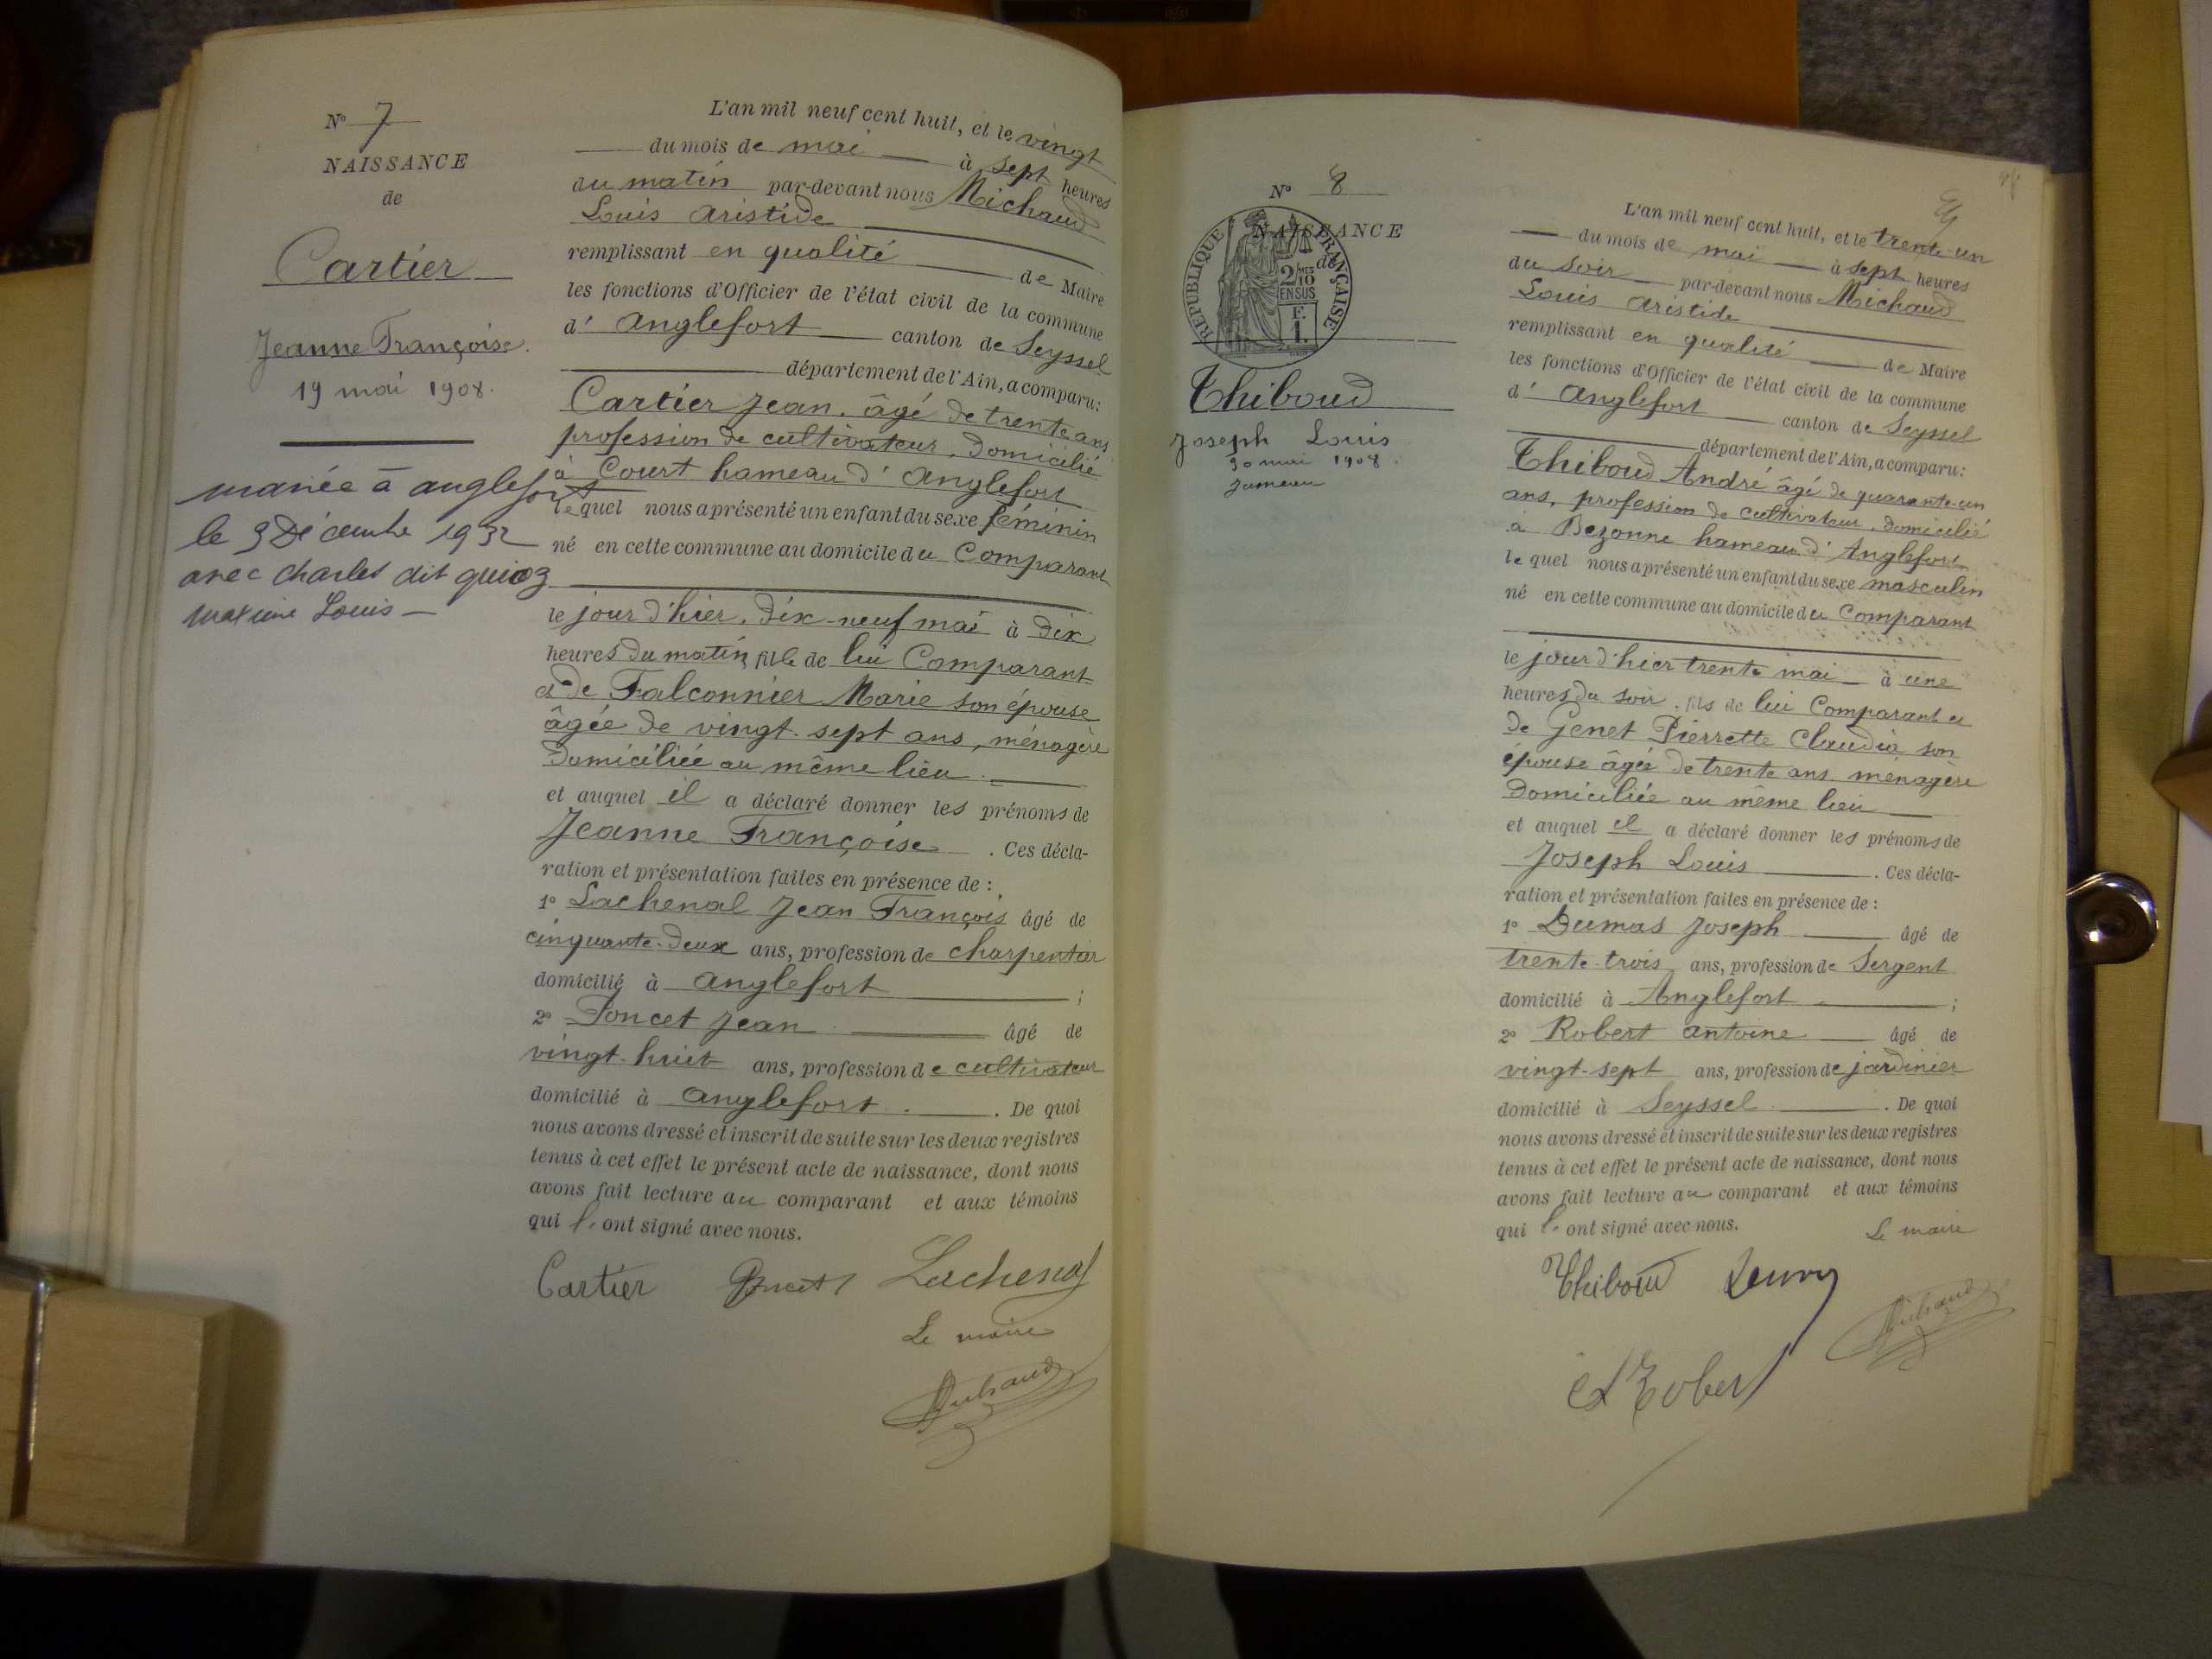 N° 7
NAISSANCE
de
Cartier
Jeanne Françoise.
19 mai 1908.
mariée à anglefort
le 3 Décembre 1932
avec Charles dit guioz
maxime Louis —
L'an mil neuf cent huit, et le vingt
du mois de mai à sept heures
du matin par-devant nous Michaud
Louis aristide
remplissant en qualité de Maire
les fonctions d'Officier de l'état civil de la commune
d' anglefort canton de Seyssel
département de l'Ain, a comparu:
Cartier Jean, âgé de trente ans
profession de cultivateur, Domicilié
à Court hameau d' anglefort
lequel nous a présenté un enfant du sexe féminin
né en cette commune au domicile du Comparant
le jour d'hier, dix-neuf mai à dix
heures du matin, fille de lui Comparant
et de Falconnier Marie son épouse
âgée de vingt-sept ans, ménagère
Domiciliée au même lieu.
et auquel il a déclaré donner les prénoms de
Jeanne Françoise. Ces décla-
ration et présentation faites en présence de :
1° Lachenal Jean François âgé de
cinquante-deux ans, profession de charpentier
domicilié à anglefort ;
2° Poncet Jean âgé de
vingt-huit ans, profession de cultivateur
domicilié à anglefort. De quoi
nous avons dressé et inscrit de suite sur les deux registres
tenus à cet effet le présent acte de naissance, dont nous
avons fait lecture au comparant et aux témoins
qui l' ont signé avec nous.
Cartier Poncet J Lachenal
Le maire
Michaud
N° 8
NAISSANCE
de
RÉPUBLIQUE FRANÇAISE
2/10 MES
EN SUS
F.
1.
Thiboud
Joseph Louis
30 mai 1908.
Jumeau
L'an mil neuf cent huit, et le trente-un
du mois de mai à sept heures
du soir par-devant nous Michaud
Louis aristide
remplissant en qualité de Maire
les fonctions d'Officier de l'état civil de la commune
d' anglefort canton de Seyssel
département de l'Ain, a comparu:
Thiboud André âgé de quarante-un
ans, profession de cultivateur, domicilié
à Bezonne hameau d' Anglefort
lequel nous a présenté un enfant du sexe masculin
né en cette commune au domicile du Comparant
le jour d'hier trente mai à une
heures du soir, fils de lui Comparant et
de Genet Pierrette Claudia son
épouse âgée de trente ans ménagère
Domiciliée au même lieu
et auquel il a déclaré donner les prénoms de
Joseph Louis. Ces décla-
ration et présentation faites en présence de :
1° Dumas Joseph âgé de
trente-trois ans, profession de Sergent
domicilié à Anglefort ;
2° Robert antoine âgé de
vingt-sept ans, profession de jardinier
domicilié à Seyssel. De quoi
nous avons dressé et inscrit de suite sur les deux registres
tenus à cet effet le présent acte de naissance, dont nous
avons fait lecture au comparant et aux témoins
qui l' ont signé avec nous.
Le maire
Thiboud
Michaud
A Robert